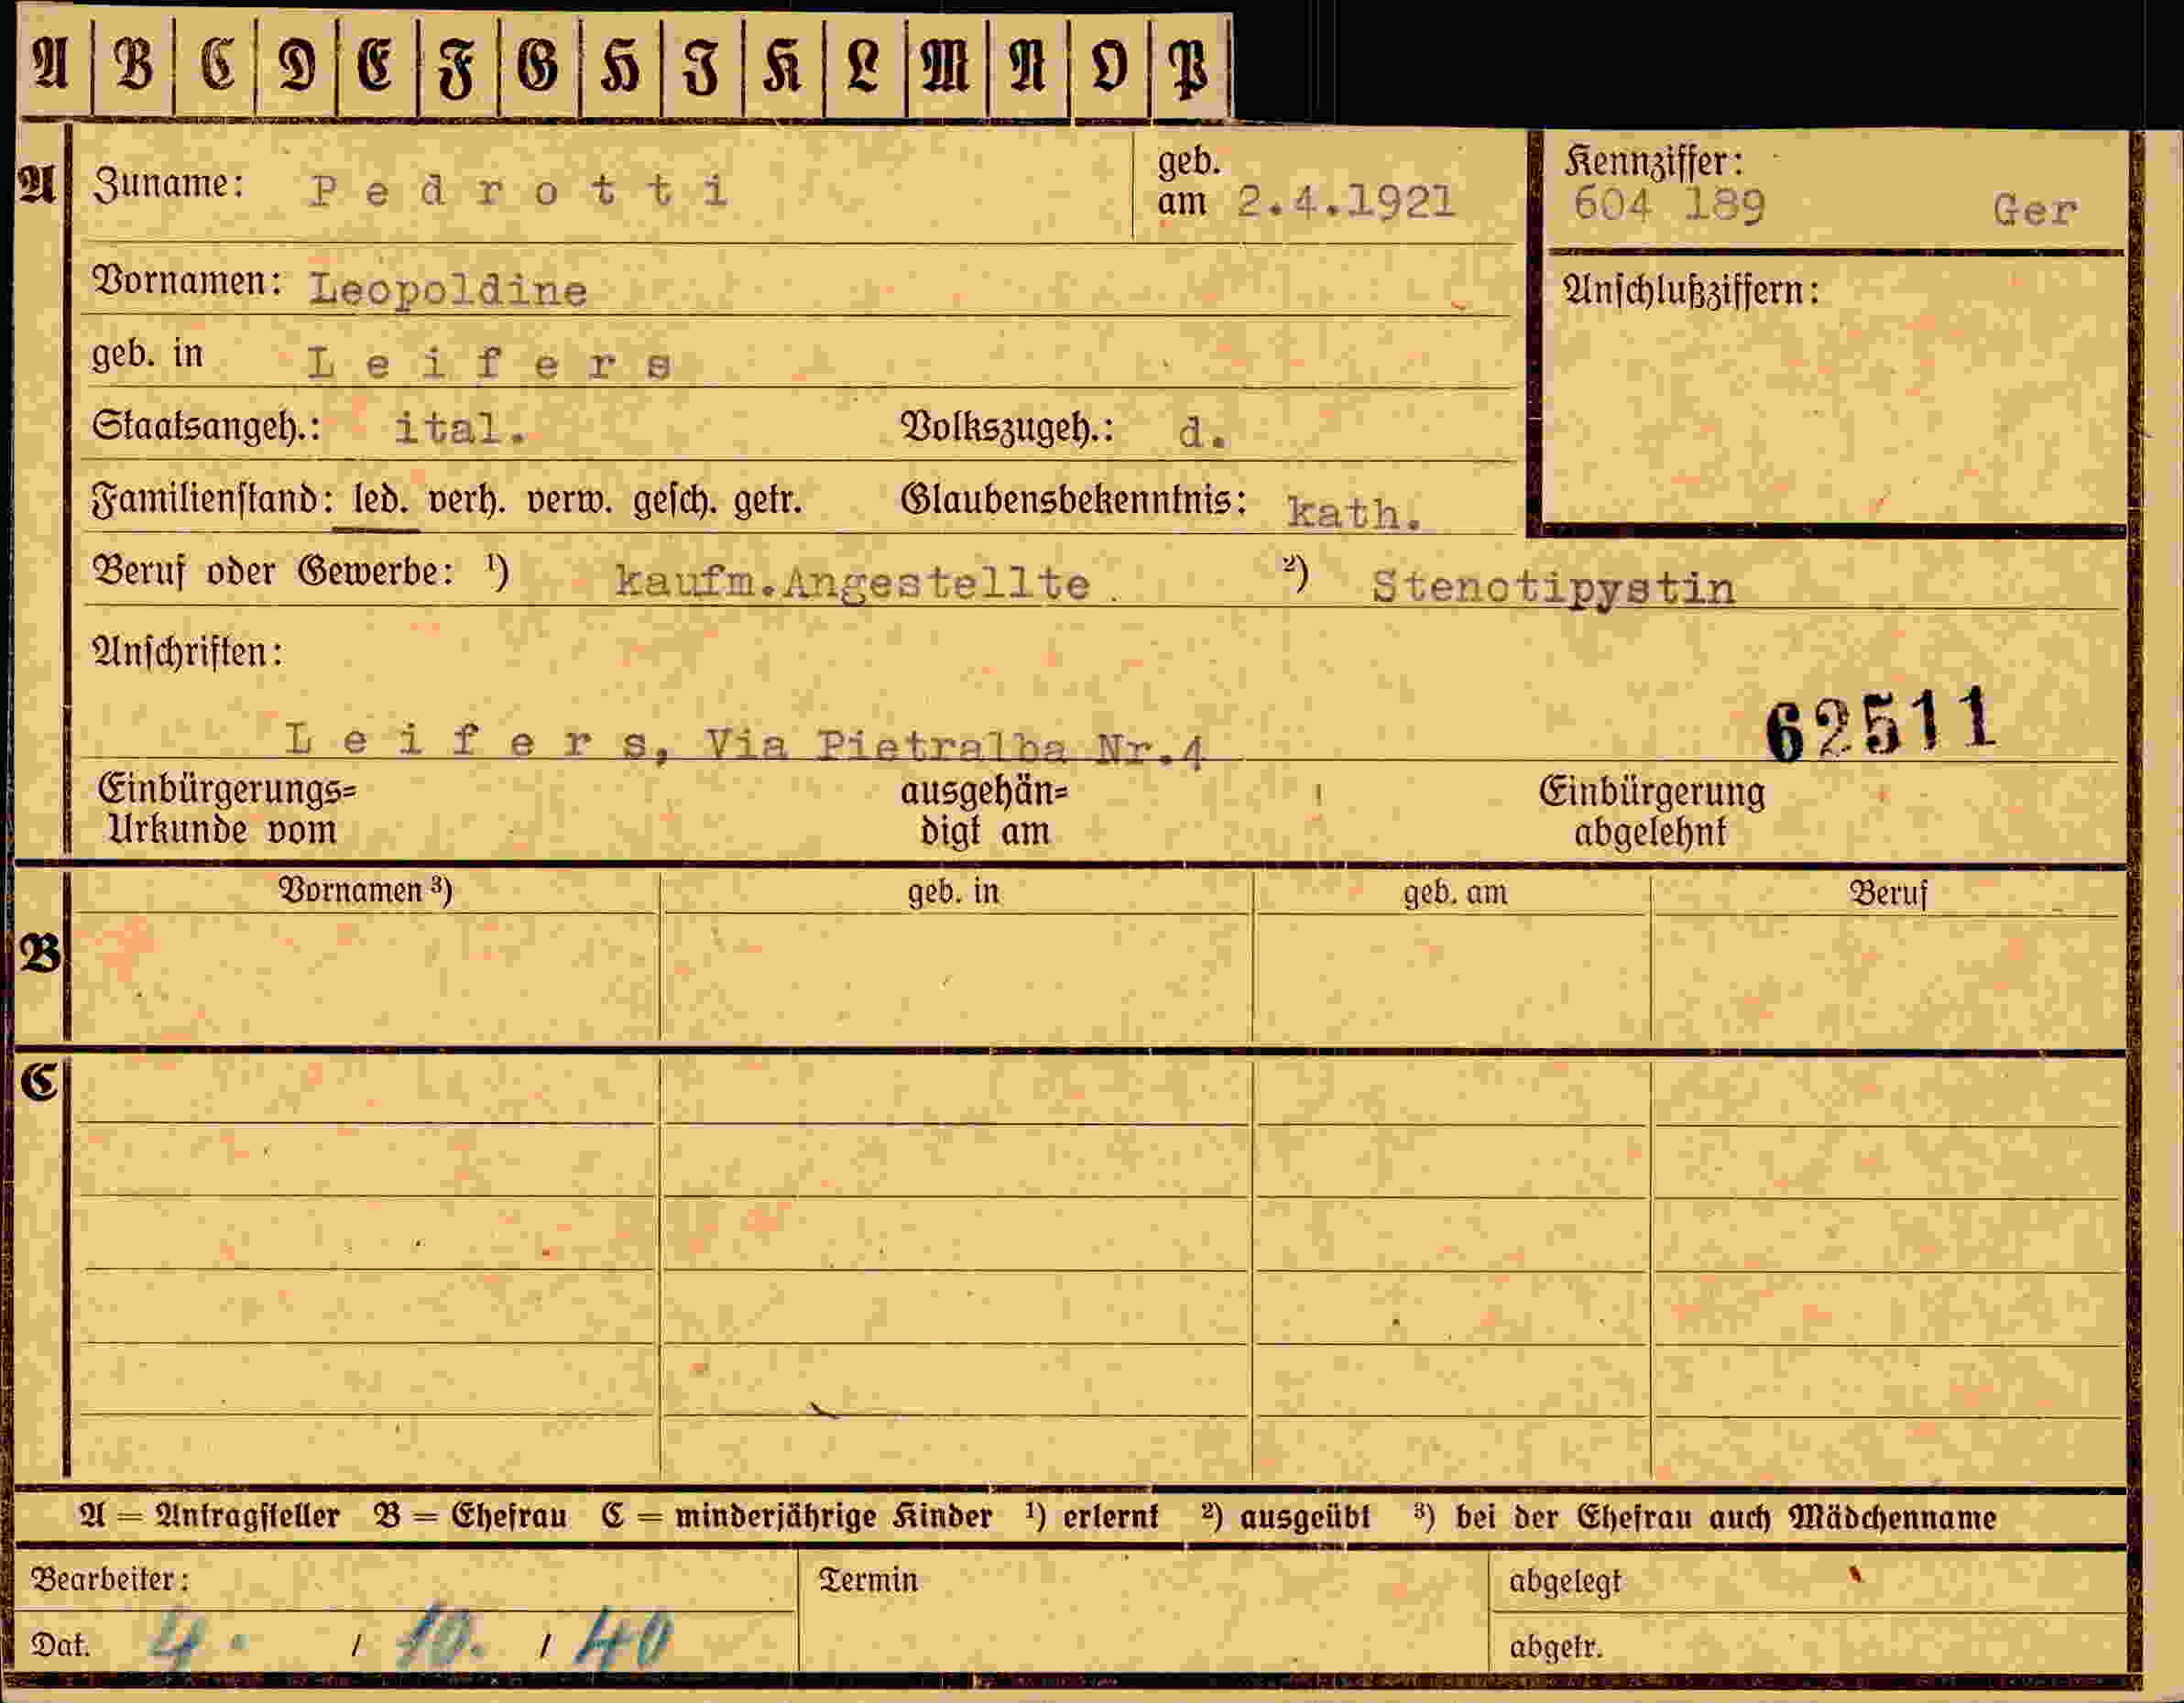 A B C D E F G H I K L M N O P
A Zuname: Pedrotti geb. am 2.4.1921 Kennziffer: 604 189 Ger
Vornamen: Leopoldine Anschlußziffern:
geb. in Leifers
Staatsangeh.: ital. Volkszugeh.: d.
Familienstand: led. verh. verw. gesch. getr. Glaubensbekenntnis: kath.
Beruf oder Gewerbe: ¹) kaufm.Angestellte. ²) Stenotipystin
Anschriften:
62511
Leifers, Via Pietralba Nr.4
Einbürgerungs= ausgehän= Einbürgerung
Urkunde vom digt am abgelehnt
Vornamen ³) geb. in geb. am Beruf
B
C
A = Antragsteller B = Ehefrau C = minderjährige Kinder ¹) erlernt ²) ausgeübt ³) bei der Ehefrau auch Mädchenname
Bearbeiter: Termin abgelegt
Dat. 4. / 10. / 40 abgetr.